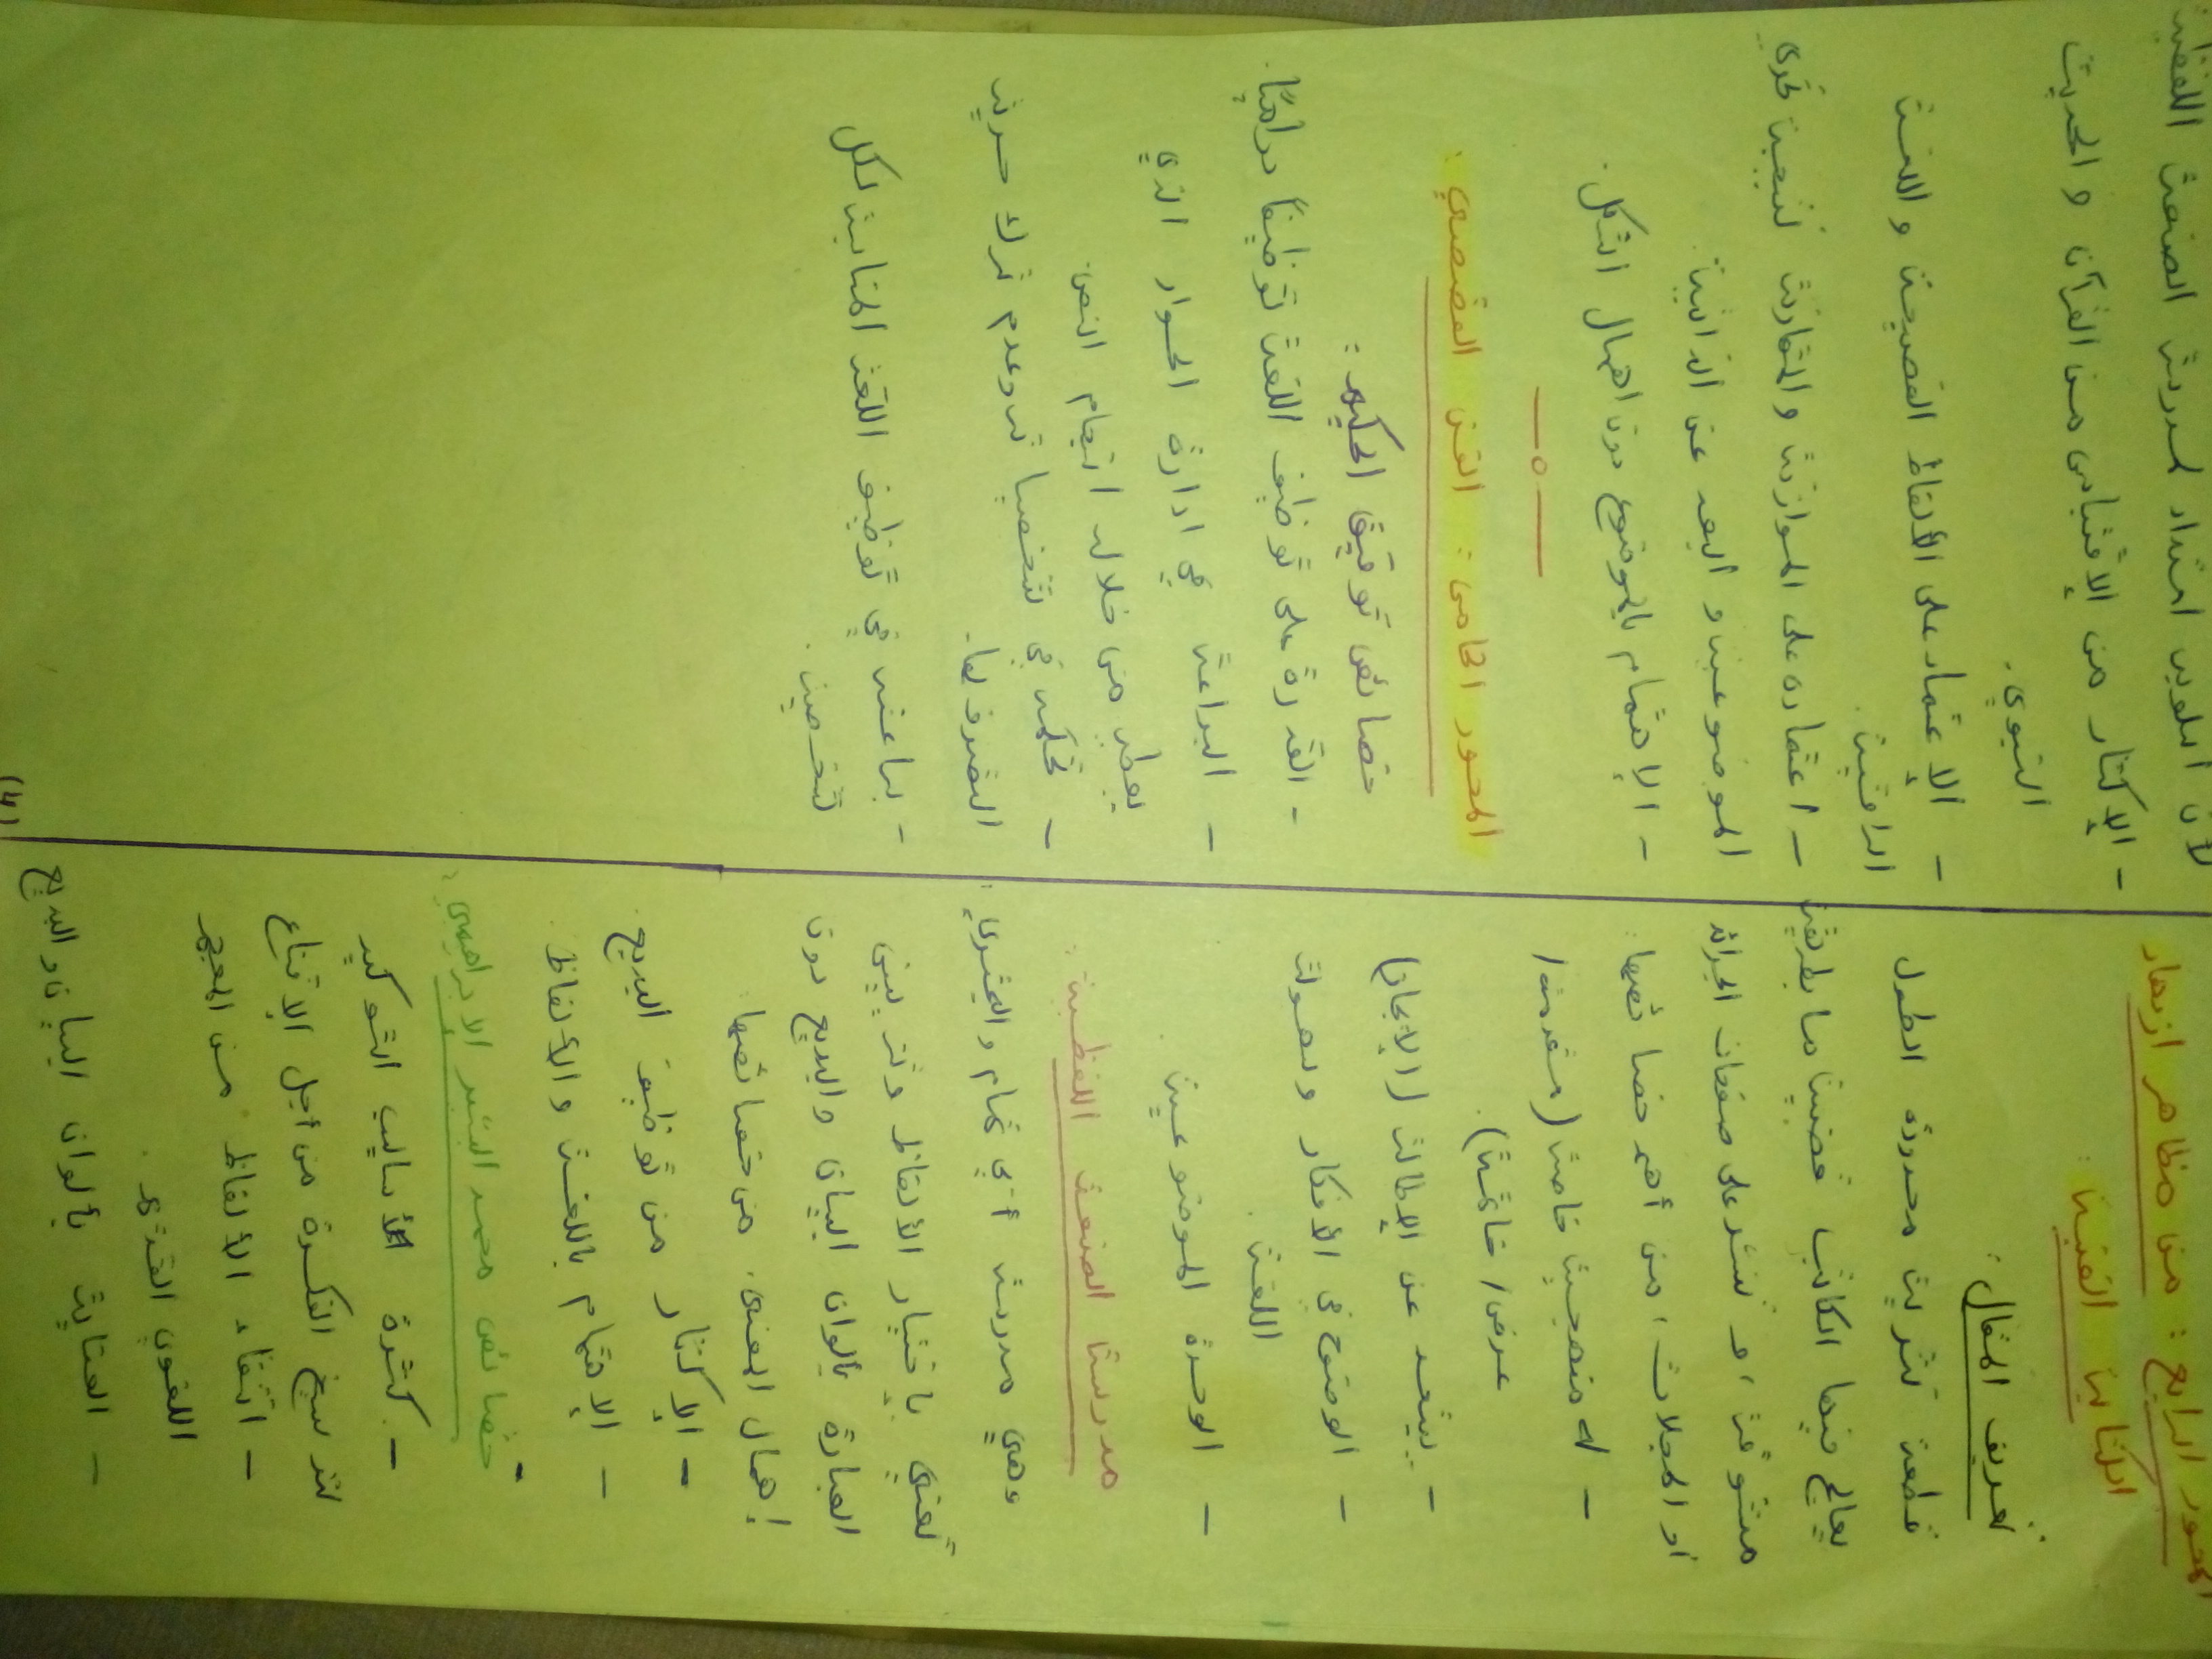 المحور الرابع: من مظاهر ازدهار
الكتابة الفنية:
تعريف المقال:
قطعة نثرية محدودة الطول
يعالج فيها الكاتب قضية ما بطريقة
مشوقة، و تنشر على صفحات الجرائد
او المجلات، من أهم خصائصها:
- له منهجية خاصة (مقدمة/
عرض/ خاتمة).
- يبتعد عن الإطالة (الايجاز)
- الوضوح في الأفكار وسهولة
اللغة.
- الوحدة الموضوعية.
مدرسة الصنعة اللفظية:
وهي مدرسة أبي تمام والبحتري،
تعني باختيار الألفاظ وتزيين
العبارة بألوان البيان والبديع دون
إهمال المعنى. من خصائصها:
- الإكثار من توظيف البديع.
- الإهتمام باللغة والألفاظ.
خصائص محمد البشير الابراهيمي:
- كثرة الأساليب التوكيد
لترسيخ الفكرة من أجل الإقناع
- انتقاء الألفاظ من المعجم
اللغوي القديم.
- العناية بألوان البيان و البديع
لأن أسلوبه امتداد لمدرسة الصنعة اللفظية
- الإكثار من الإقتباس من القرآن و الحديث
النبوي.
- الإعتماد على الألفاظ الفصيحة واللغة
الراقية.
- اعتماده على الموازنة والمقارنة لنتيجة تحرى
الموضوعية و البعد عن الذاتية.
- الإهتمام بالموضوع دون اهمال الشكل.
—o—
المحور الخامس: الفن القصصي:
خصائص توفيق الحكيم:
- القدرة على توظيف اللغة توظيفًا دراميًا.
- البراعة في ادارة الحوار الذي
يعطي من خلاله انسجام النص.
- تحكمه في شخصياته وعدم ترك حرية
التصرف لها.
- براعته في توظيف اللغة المناسبة لكل
شخصية.
(4)